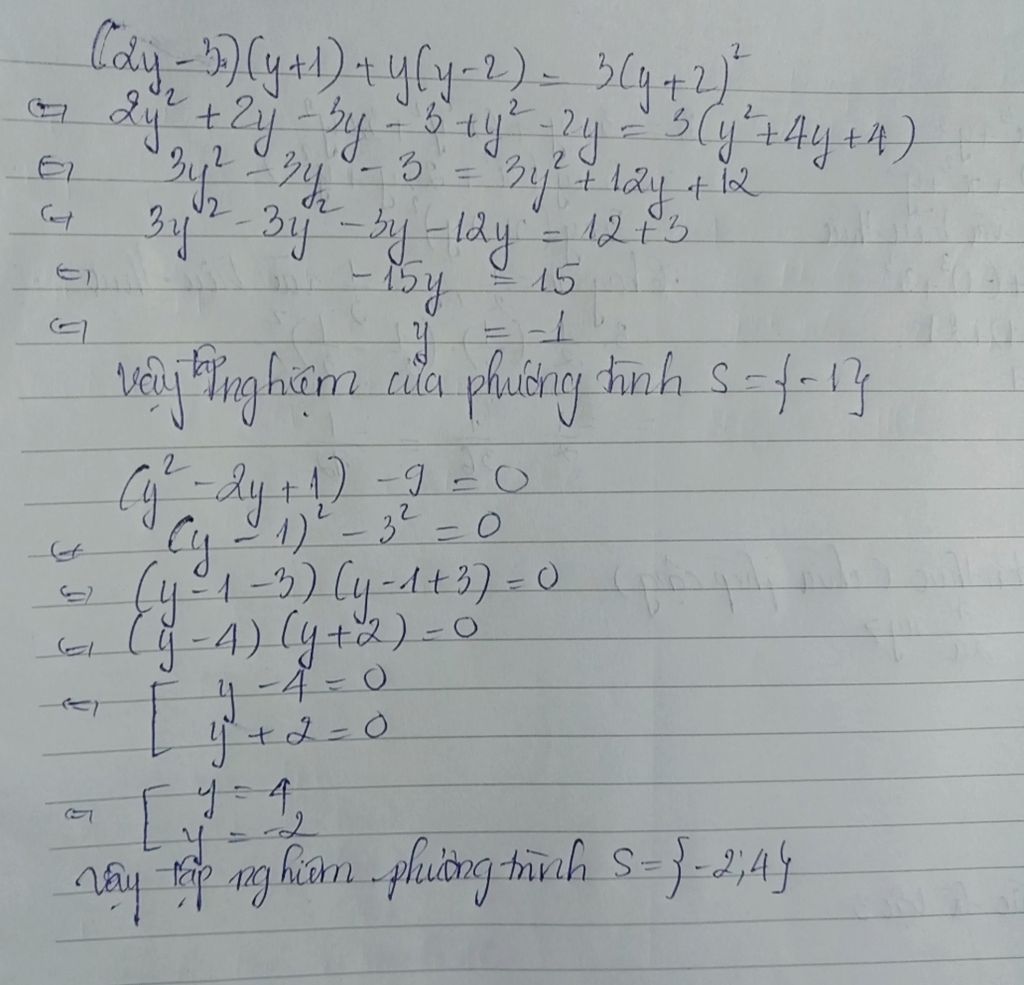 (2y - 3)(y+1) + y(y-2) = 3(y+2)²
⇔ 2y² + 2y - 3y - 3 + y² - 2y = 3(y² + 4y + 4)
⇔ 3y² - 3y - 3 = 3y² + 12y + 12
⇔ 3y² - 3y² - 3y - 12y = 12 + 3
⇔ -15y = 15
⇔ y = -1
Vậy tập nghiệm của phương tình S = {-1}
(y² - 2y + 1) - 9 = 0
⇔ (y - 1)² - 3² = 0
⇔ (y - 1 - 3)(y - 1 + 3) = 0
⇔ (y - 4)(y + 2) = 0
⇔ [ y - 4 = 0
y + 2 = 0
⇔ [ y = 4
y = -2
Vậy tập nghiệm phương trình S = {-2; 4}